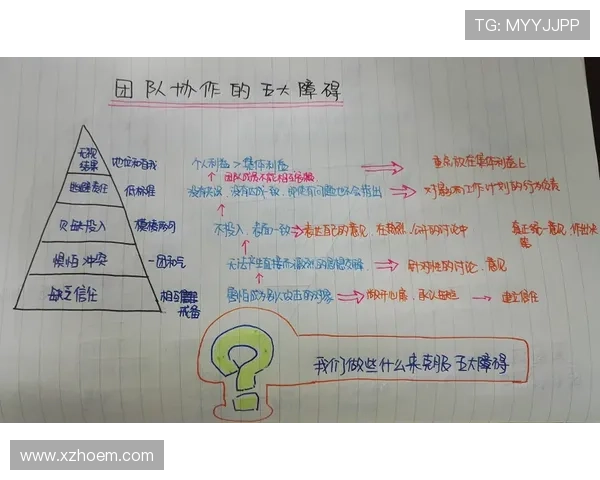 TG: MYYJJPP
团队协作的五大障碍
无视结果
地位和自我
个人利益 > 集体利益
重点放在集体利益上
团队成员不能相互信赖
逃避责任
低标准
对最终工作计划的行为负责
欠缺投入
模棱两可
不投入，表面一致
表达自己的意见，在激烈、公开的讨论中
真正统一意见，作出决策
惧怕冲突
一团和气
无法产生直接而激烈的思想交锋
针对性的讨论、意见
缺乏信任
相互戒备
害怕成为别人攻击的对象
敞开心扉，承认缺点
建立信任
我们做些什么来克服五大障碍
www.xzhoem.com